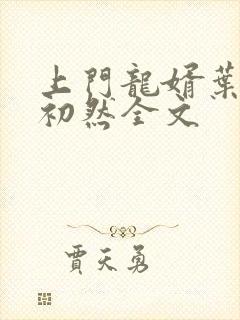 上門龍婿葉
初然全文
賈天勇